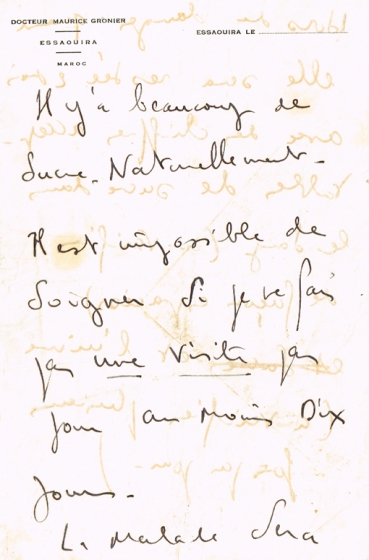 DOCTEUR MAURICE GRONIER
ESSAOUIRA
MAROC
ESSAOUIRA LE
Il y'a beaucoup de
Sucre. Naturellement.
Il est impossible de
Soigner Si je ne fais
pas une visite par
jour au moins Dix
Jours.
Le Malade Sera